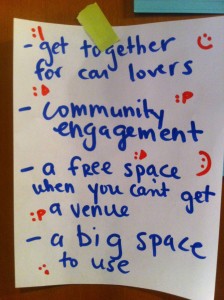 - get together
for car lovers
- community
engagement
- a free space
when you can't get
a venue
- a big space
to use